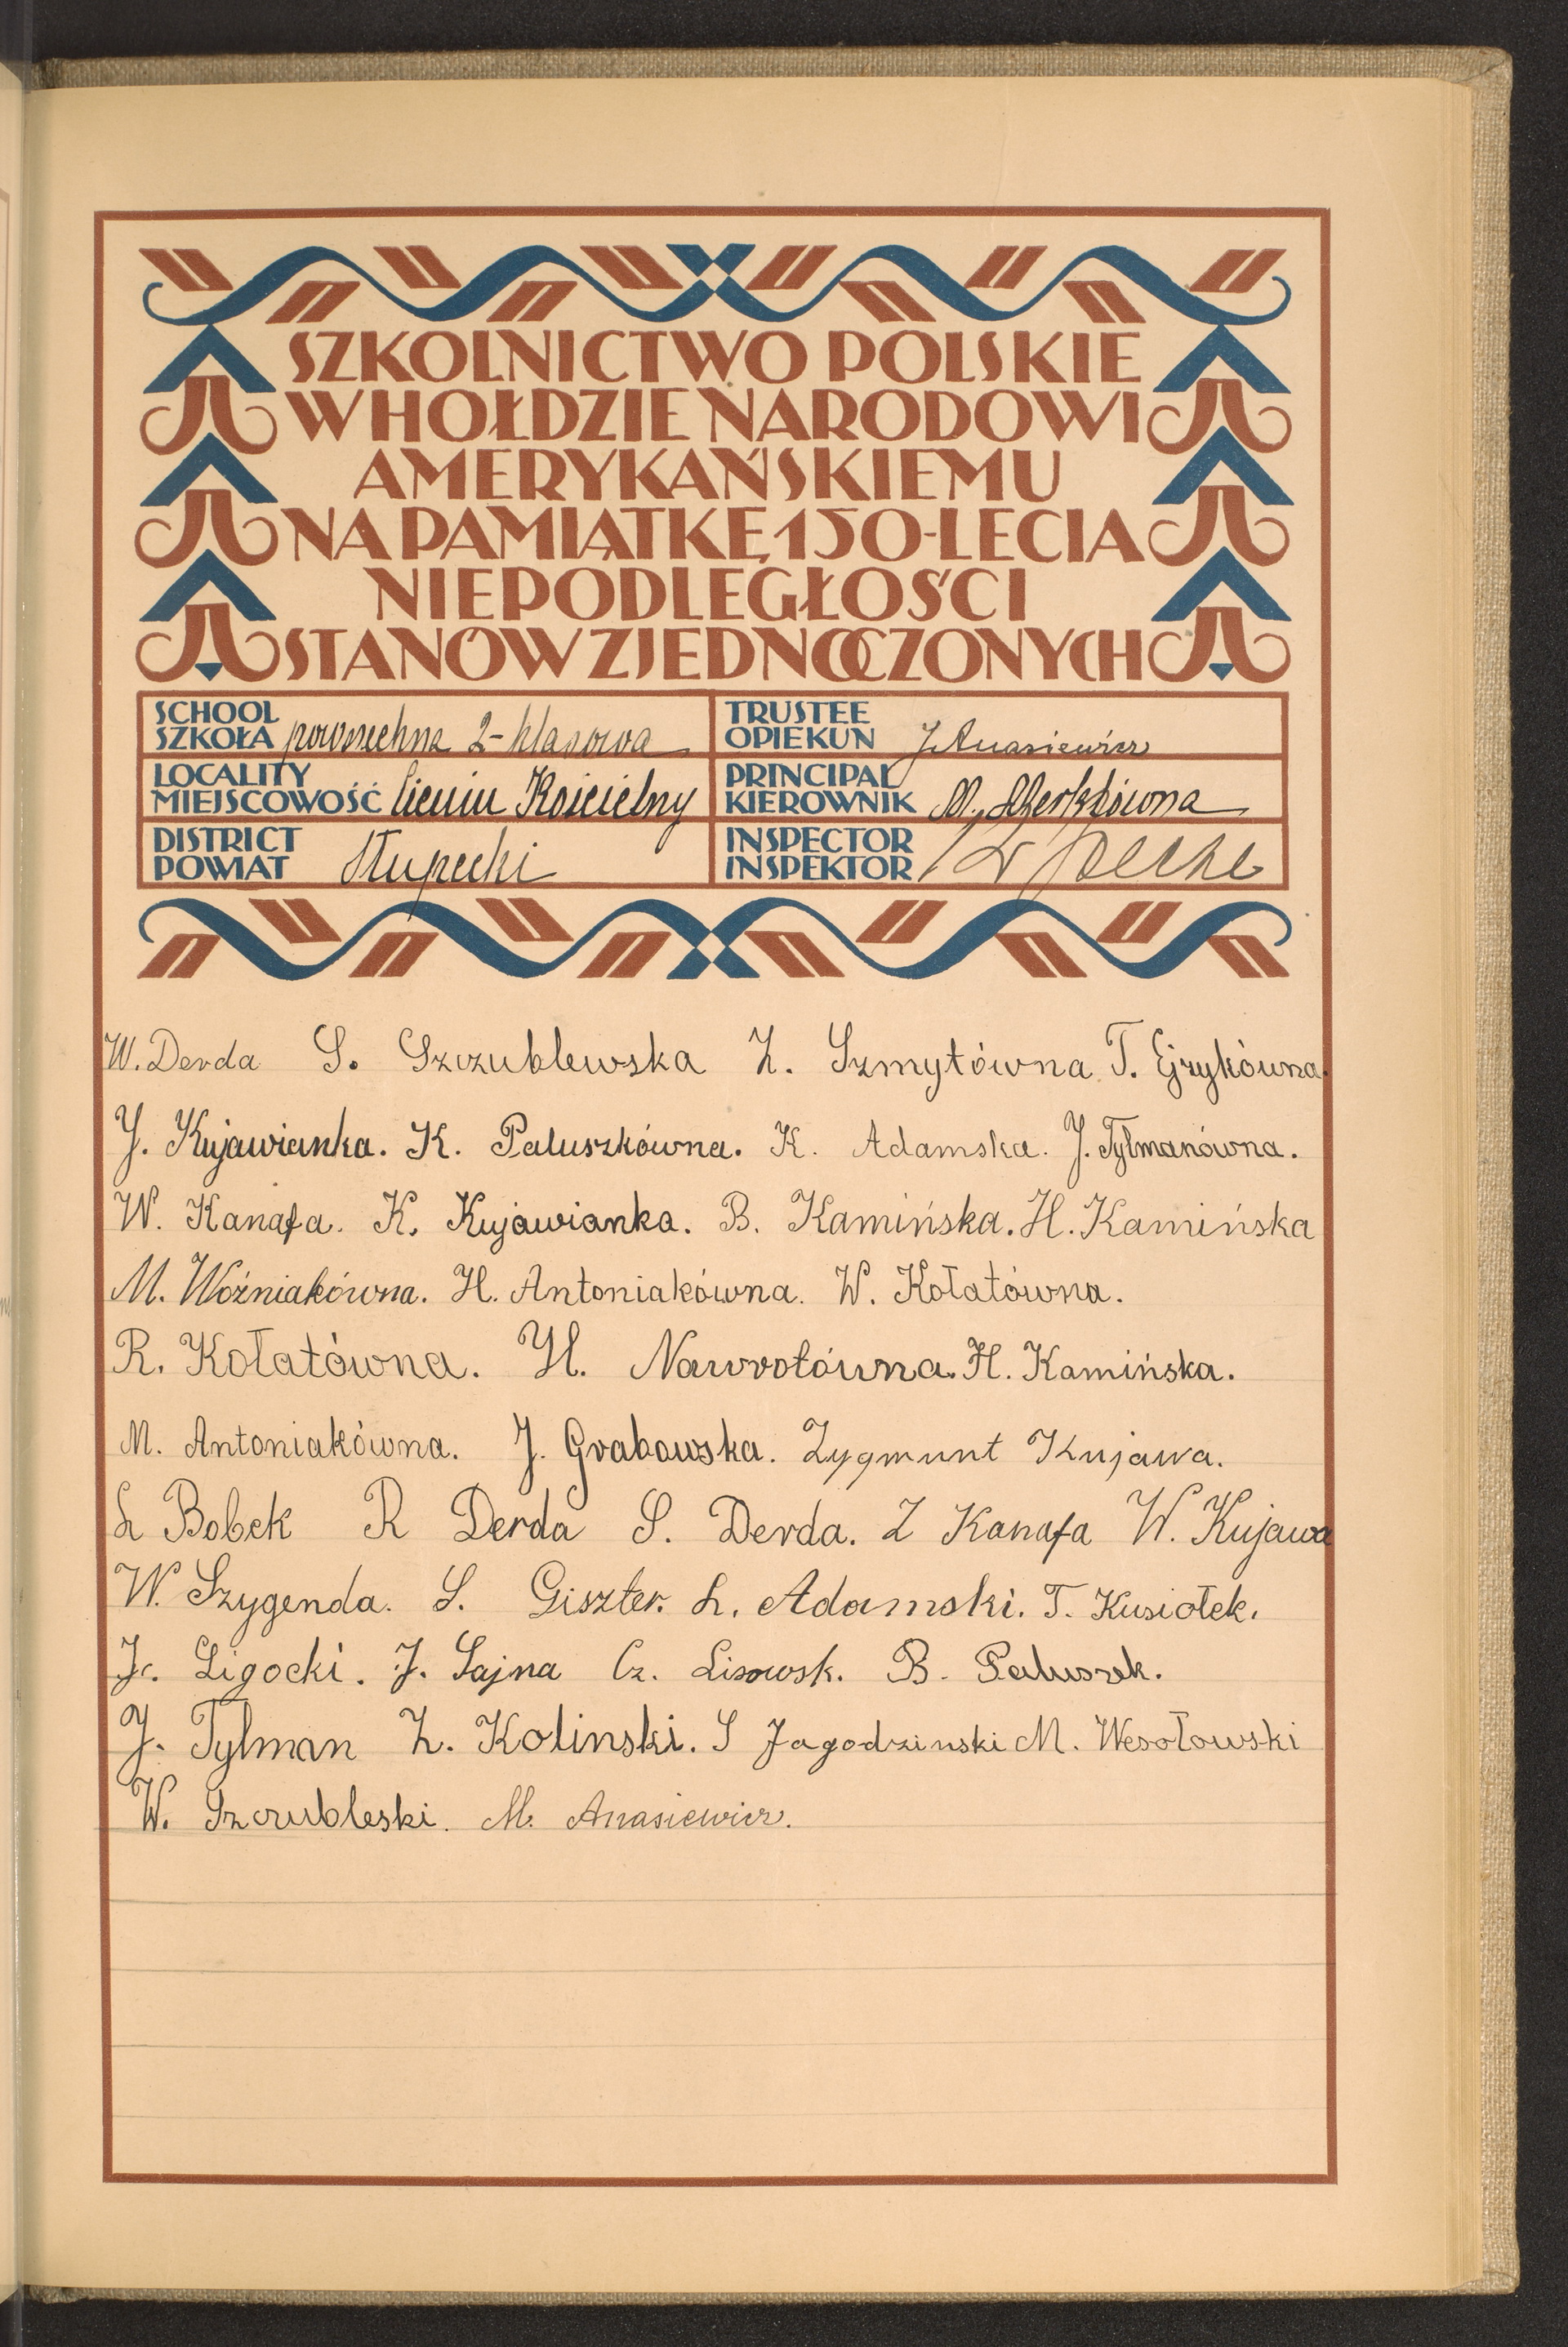 SZKOLNICTWO POLSKIE
W HOŁDZIE NARODOWI
AMERYKAŃSKIEMU
NA PAMIĄTKĘ 150-LECIA
NIEPODLEGŁOŚCI
STANÓW ZJEDNOCZONYCH
SCHOOL
SZKOŁA powszechna 2-klasowa
TRUSTEE
OPIEKUN J. Anasiewicz
LOCALITY
MIEJSCOWOŚĆ Cienin Kościelny
PRINCIPAL
KIEROWNIK M.
DISTRICT
POWIAT Słupecki
INSPECTOR
INSPEKTOR
W. Derda S. Szczublewska Z. Szmytówna T. Ejzykówna.
J. Kujawianka. K. Paluszkówna. K. Adamska. J. Tylmanówna.
W. Kanafa. K. Kujawianka. B. Kamińska. H. Kamińska
M. Woźniakówna. H. Antoniakówna. W. Kołatówna.
R. Kołatówna. H. Nawrotówna. H. Kamińska.
M. Antoniakówna. J. Grabowska. Zygmunt Kujawa.
L Bobek R Derda S. Derda. Z Kanafa W. Kujawa
W. Szygenda. S. Giszter. L. Adamski. T. Kusiołek.
J. Ligocki. J. Sajna Cz. Lisowsk. B. Paluszek.
J. Tylman Z. Kolinski. S Jagodzinski M. Wesołowski
W. Szczubleski. M. Anasiewicz.